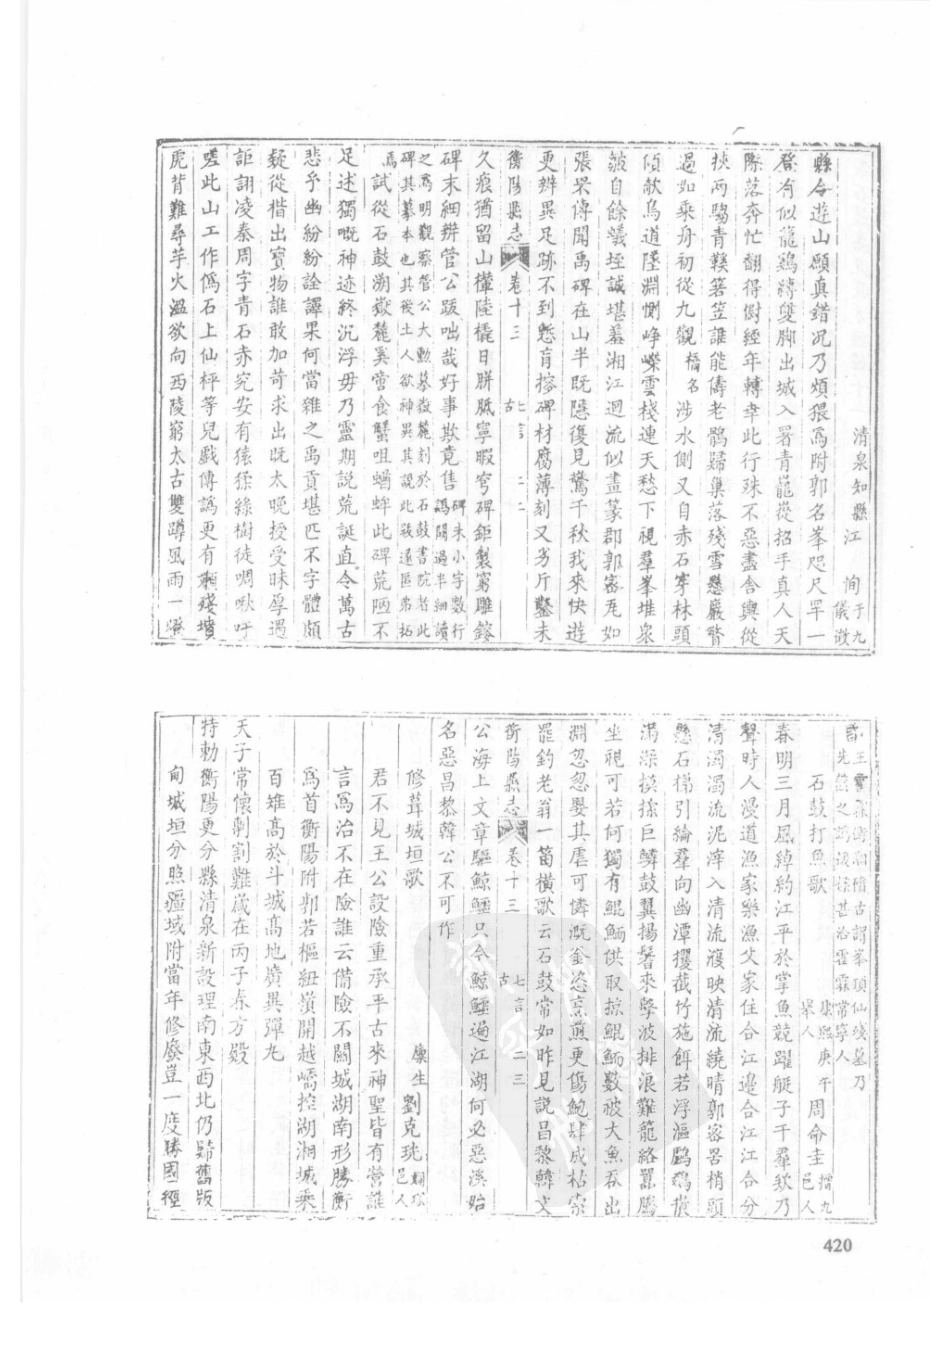 清泉知縣江 恂 于九 儀徵
縣令遊山願真錯況乃煩猥爲附郭名峯咫尺罕一
登有似龍鷄縛雙脚出城入署青蘢從招手真人天
際落奔忙翻得閱經年轉幸此行殊不惡盡舍輿從
挾兩騶青鞵箬笠誰能儔老鶻歸巢落殘雪懸巖瞥
過如乘舟初從九觀 橋名 涉水側又自赤石穿林頭
傾欹鳥道墜淵惻崢嶸雲棧連天愁下視羣峯堆衆
皺自餘蟻垤誠堪羞湘江迴流似畫篆郡郭密瓦如
張罘傳聞禹碑在山半既隱復見驚千秋我來快遊
更辨異足跡不到慙盲撩碑材腐薄刻又劣斤鑿未
衡陽縣志 卷十三 七言古 二二
久痕猶留山欙陸橇日胼胝寧暇穹碑鉅製窮雕鎪
碑末細辨管公跋咄哉好事欺竟售 碑末小字數行
爲閱過半細讀
之爲明觀察管公大勳摹嶽麓刻於石鼓書院者此
碑其摹本也其後土人欲神異其說此巖遠區弟拓
焉 試從石鼓溯嶽麓奚啻食蟹咀蝤蛑此碑荒陋不
足述獨嘅神迹終沉浮毋乃靈期說荒誕直令萬古
悲乎幽紛紛詮譯果何當雜之禹貢堪匹不字體頗
疑從楷出寳物誰敢加苛求出既太晚授受昧厚過
詎詡凌秦周字青石赤究安有猿猱綠樹徒啁啾吁
嗟此山工作僞石上仙枰等兒戲傳譌更有殘墳
虎背難尋芋火溫欲向西陵窮太古雙蹲風雨一
石鼓打魚歌 康熙庚午舉人 周命圭 搢九 邑人
春明三月風綽約江平於掌魚競躍艇子千羣欸乃
聲時人漫道漁家樂漁父家住合江邊合江江合分
清濁濁流泥滓入清流濩映清流繞晴郭密罟梢頭
懸石梯引綸羣向幽潭攫截竹施餌若浮漚鸕鷀
滿深摸捺巨鱗鼓翼揚鬐來擊波排浪難籠絡羃騰
坐視可若何獨有鯤鮞供取掠鯤鮞數被大魚吞出
淵忽忽嬰其虐可憐溉釜恣烹煎更傷鮑肆成枯索
罷釣老翁一笛橫歌云石鼓常如昨見説昌黎韓文
衡陽縣志 卷十三 七言古 二三
公海上文章驅鯨鱷只今鯨鱷遍江湖何必惡溪始
名惡昌黎韓公不可作
修葺城垣歌 廩生 劉克珖 邑人
君不見王公設險重承平古來神聖皆有營誰
言爲治不在險誰云備險不關城湖南形勝衡
爲首衡陽附郭若樞紐嶺開越嶠控湖湘城乘
百雉髙於斗城髙地廣異彈丸
天子常懷剸割難歲在丙子春方毀
特勅衡陽更分縣清泉新設理南東西北仍歸舊版
甸城垣分照疆域附當年修廢豈一度勝國經
420